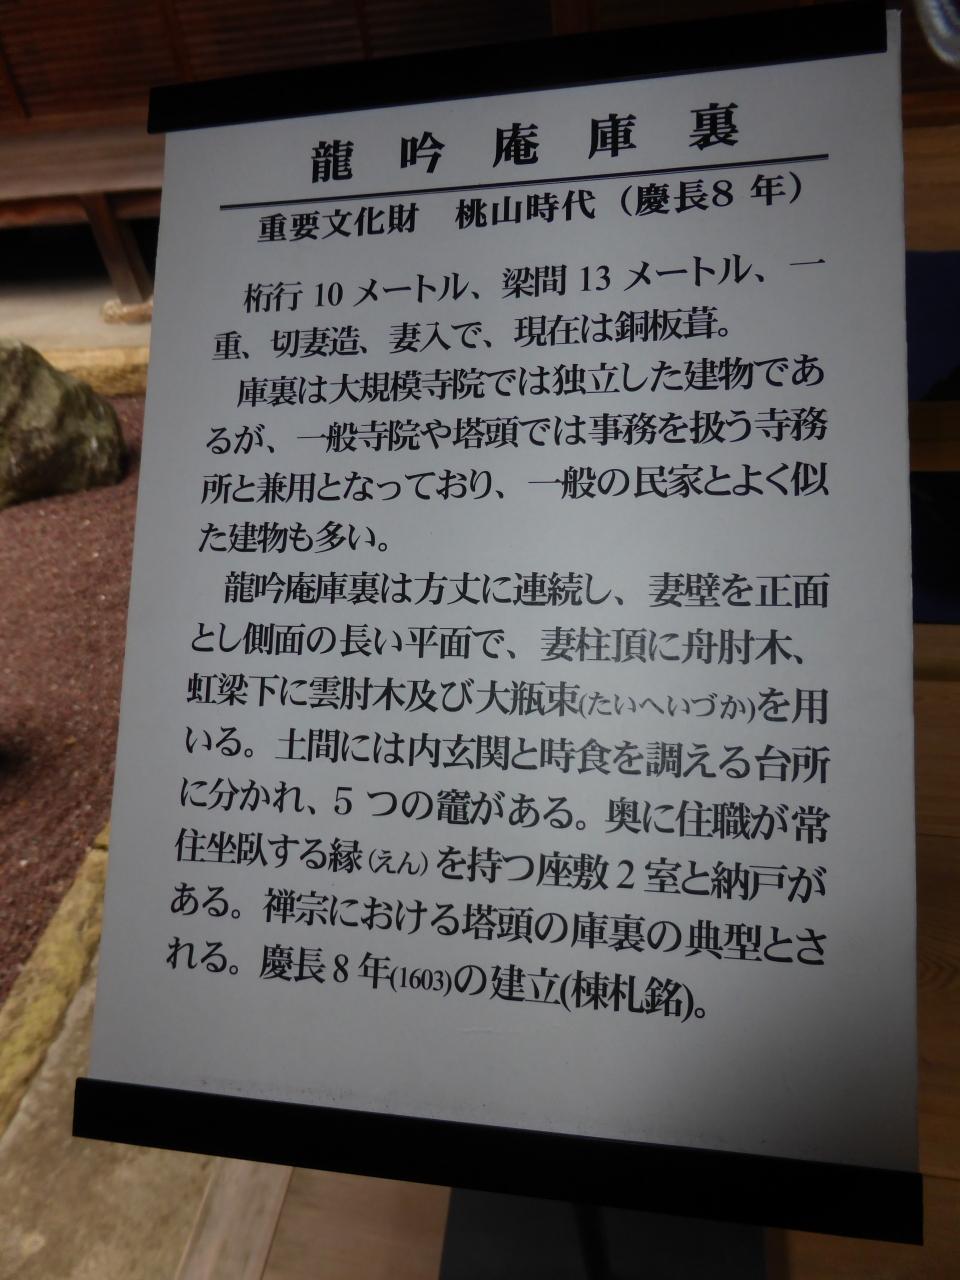 龍吟庵庫裏
重要文化財　桃山時代（慶長8 年）
桁行 10 メートル、梁間 13 メートル、一
重、切妻造、妻入で、現在は銅板葺。
庫裏は大規模寺院では独立した建物であ
るが、一般寺院や塔頭では事務を扱う寺務
所と兼用となっており、一般の民家とよく似
た建物も多い。
龍吟庵庫裏は方丈に連続し、妻壁を正面
とし側面の長い平面で、妻柱頂に舟肘木、
虹梁下に雲肘木及び大瓶束(たいへいづか)を用
いる。土間には内玄関と時食を調える台所
に分かれ、5 つの竈がある。奥に住職が常
住坐臥する縁(えん)を持つ座敷 2 室と納戸が
ある。禅宗における塔頭の庫裏の典型とさ
れる。慶長 8 年(1603)の建立(棟札銘)。